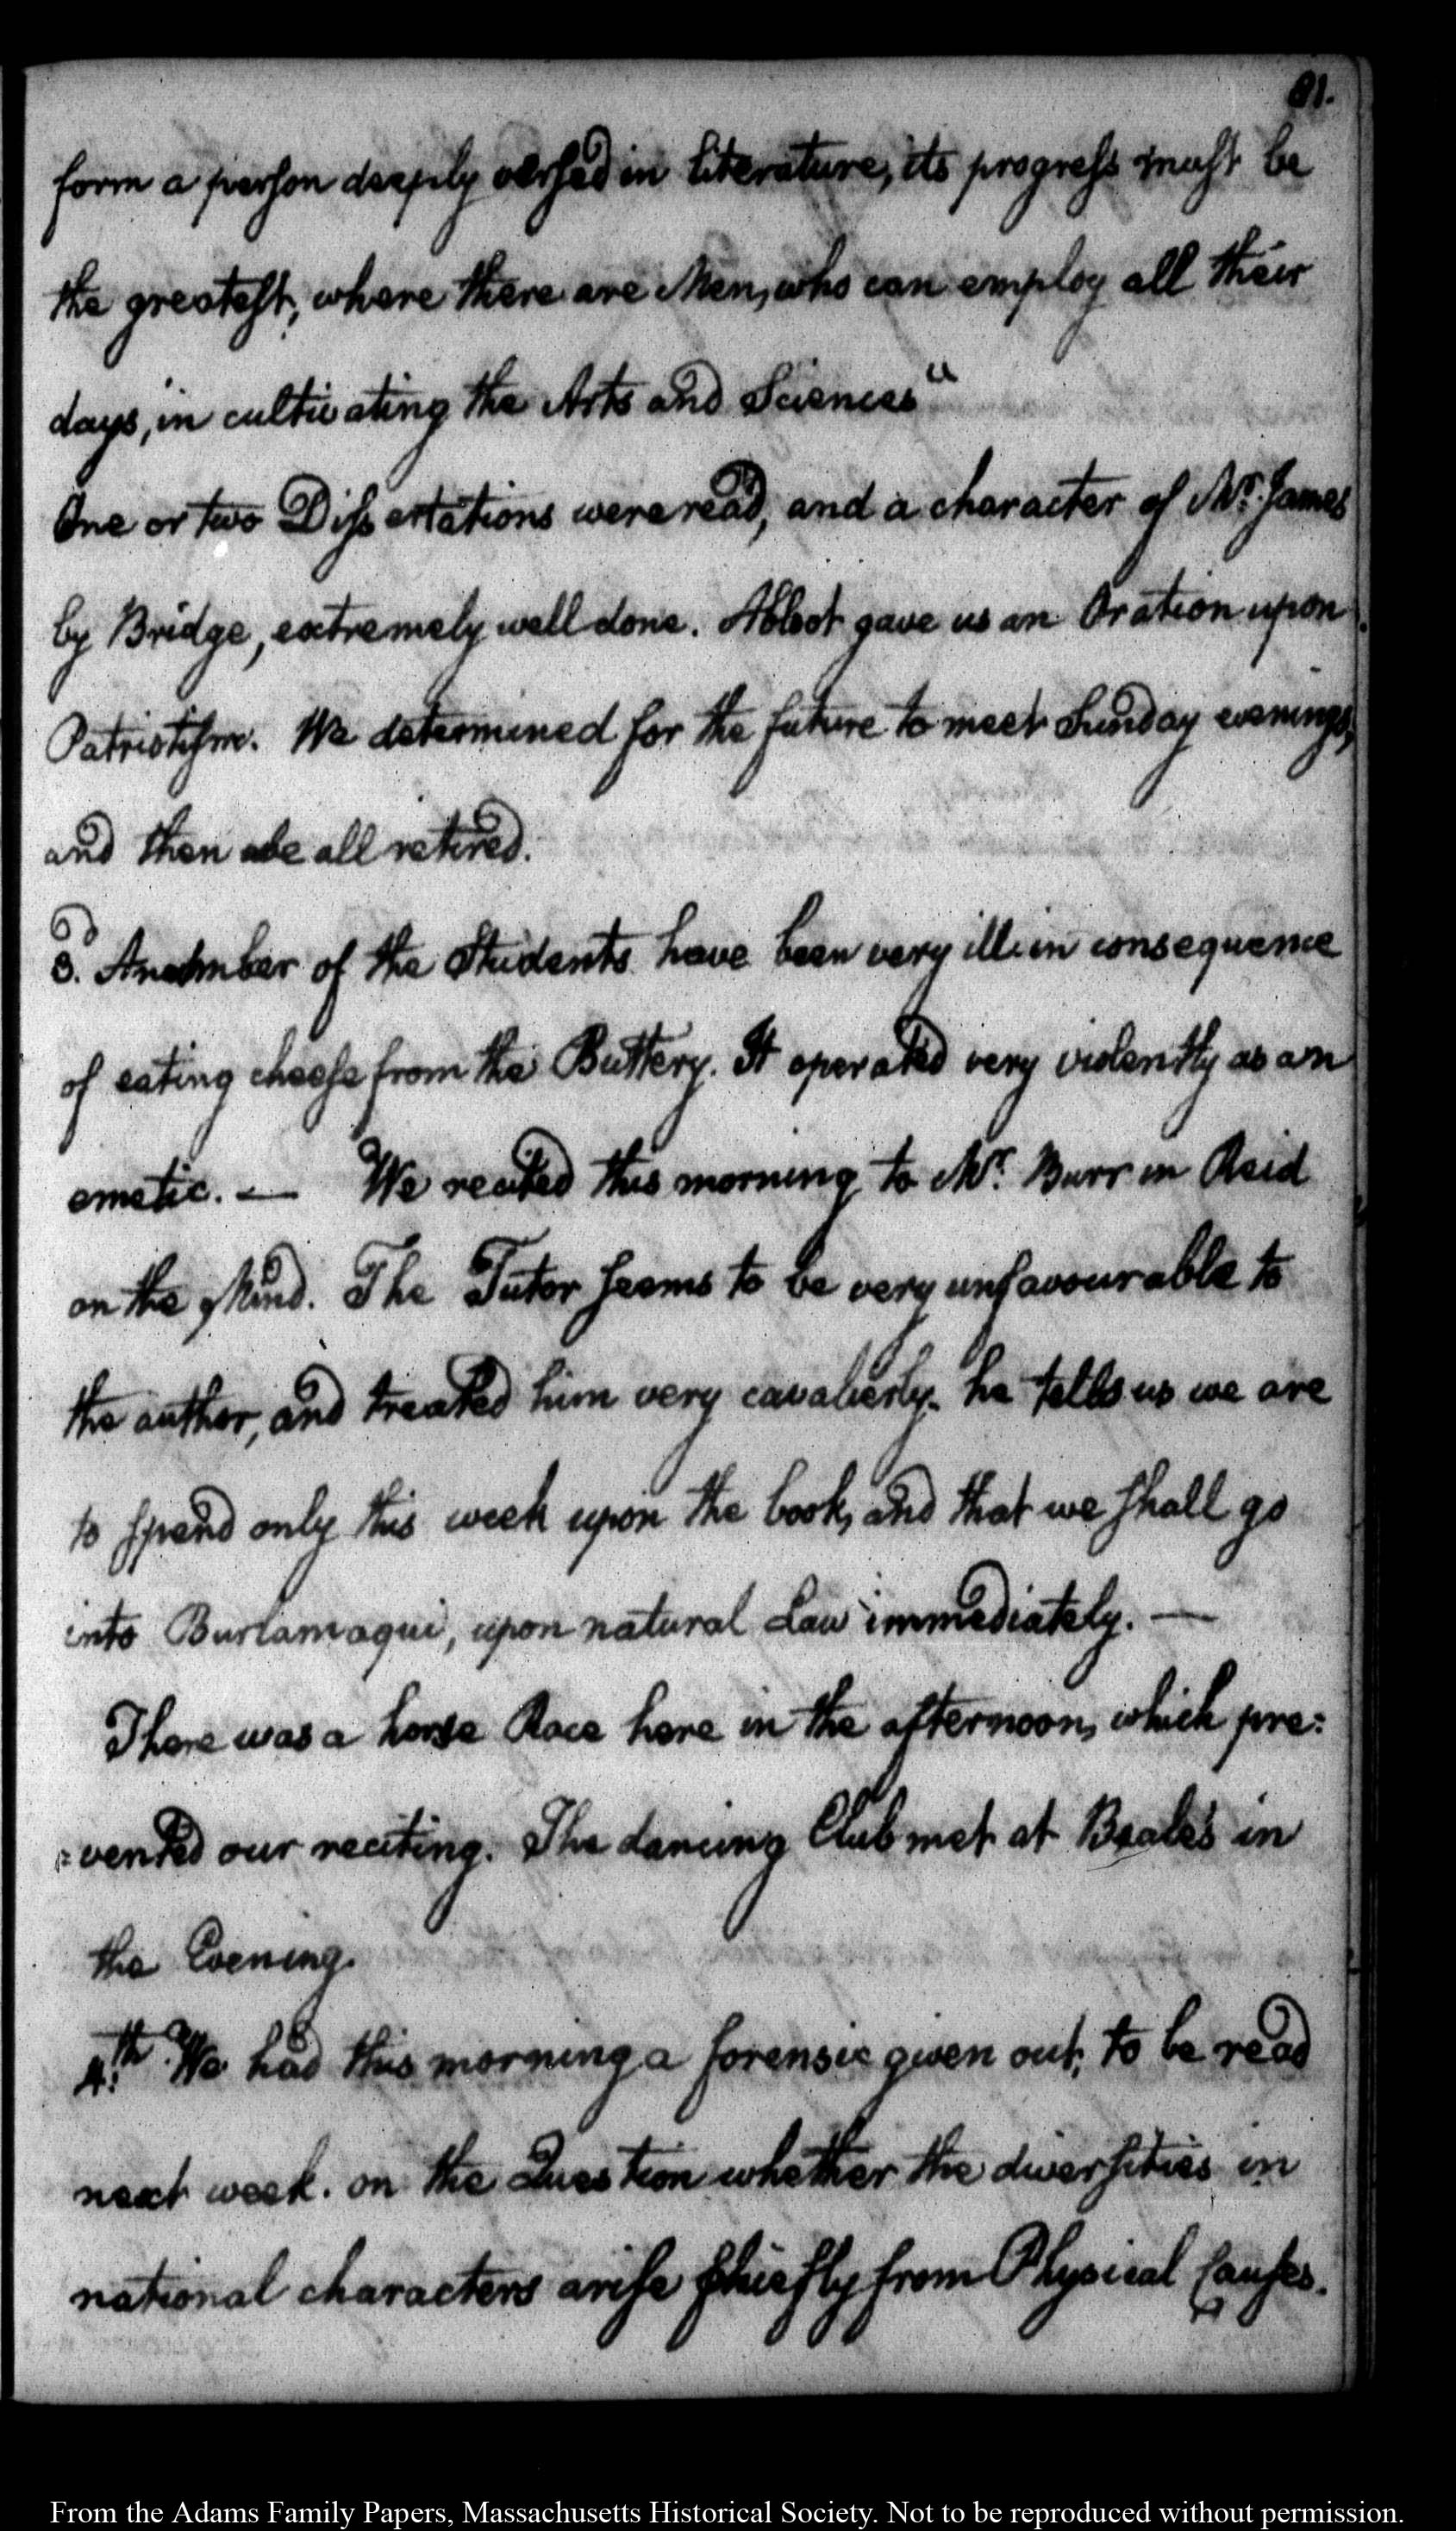 81.
form a person deeply versed in literature, its progress must be
the greatest, where there are Men, who can employ all their
days, in cultivating the Arts and Sciences"
One or two Dissertations were read, and a character of Mr. James
by Bridge, extremely well done. Abbot gave us an Oration upon
Patriotism. We determined for the future to meet Sunday evenings,
and then we all retired.
3d. A number of the Students have been very ill in consequence
of eating cheese from the Buttery. It operated very violently as an
emetic. — We recited this morning to Mr. Burr in Reid
on the Mind. The Tutor seems to be very unfavourable to
the author, and treated him very cavalierly. he tells us we are
to spend only this week upon the book, and that we shall go
into Burlamaqui, upon natural Law immediately. —
There was a horse Race here in the afternoon, which pre:
:vented our reciting. The dancing Club met at Beale's in
the Evening.
4th. We had this morning a forensic given out, to be read
next week. on the Question whether the diversities in
national characters arise chiefly from Physical Causes.
From the Adams Family Papers, Massachusetts Historical Society. Not to be reproduced without permission.